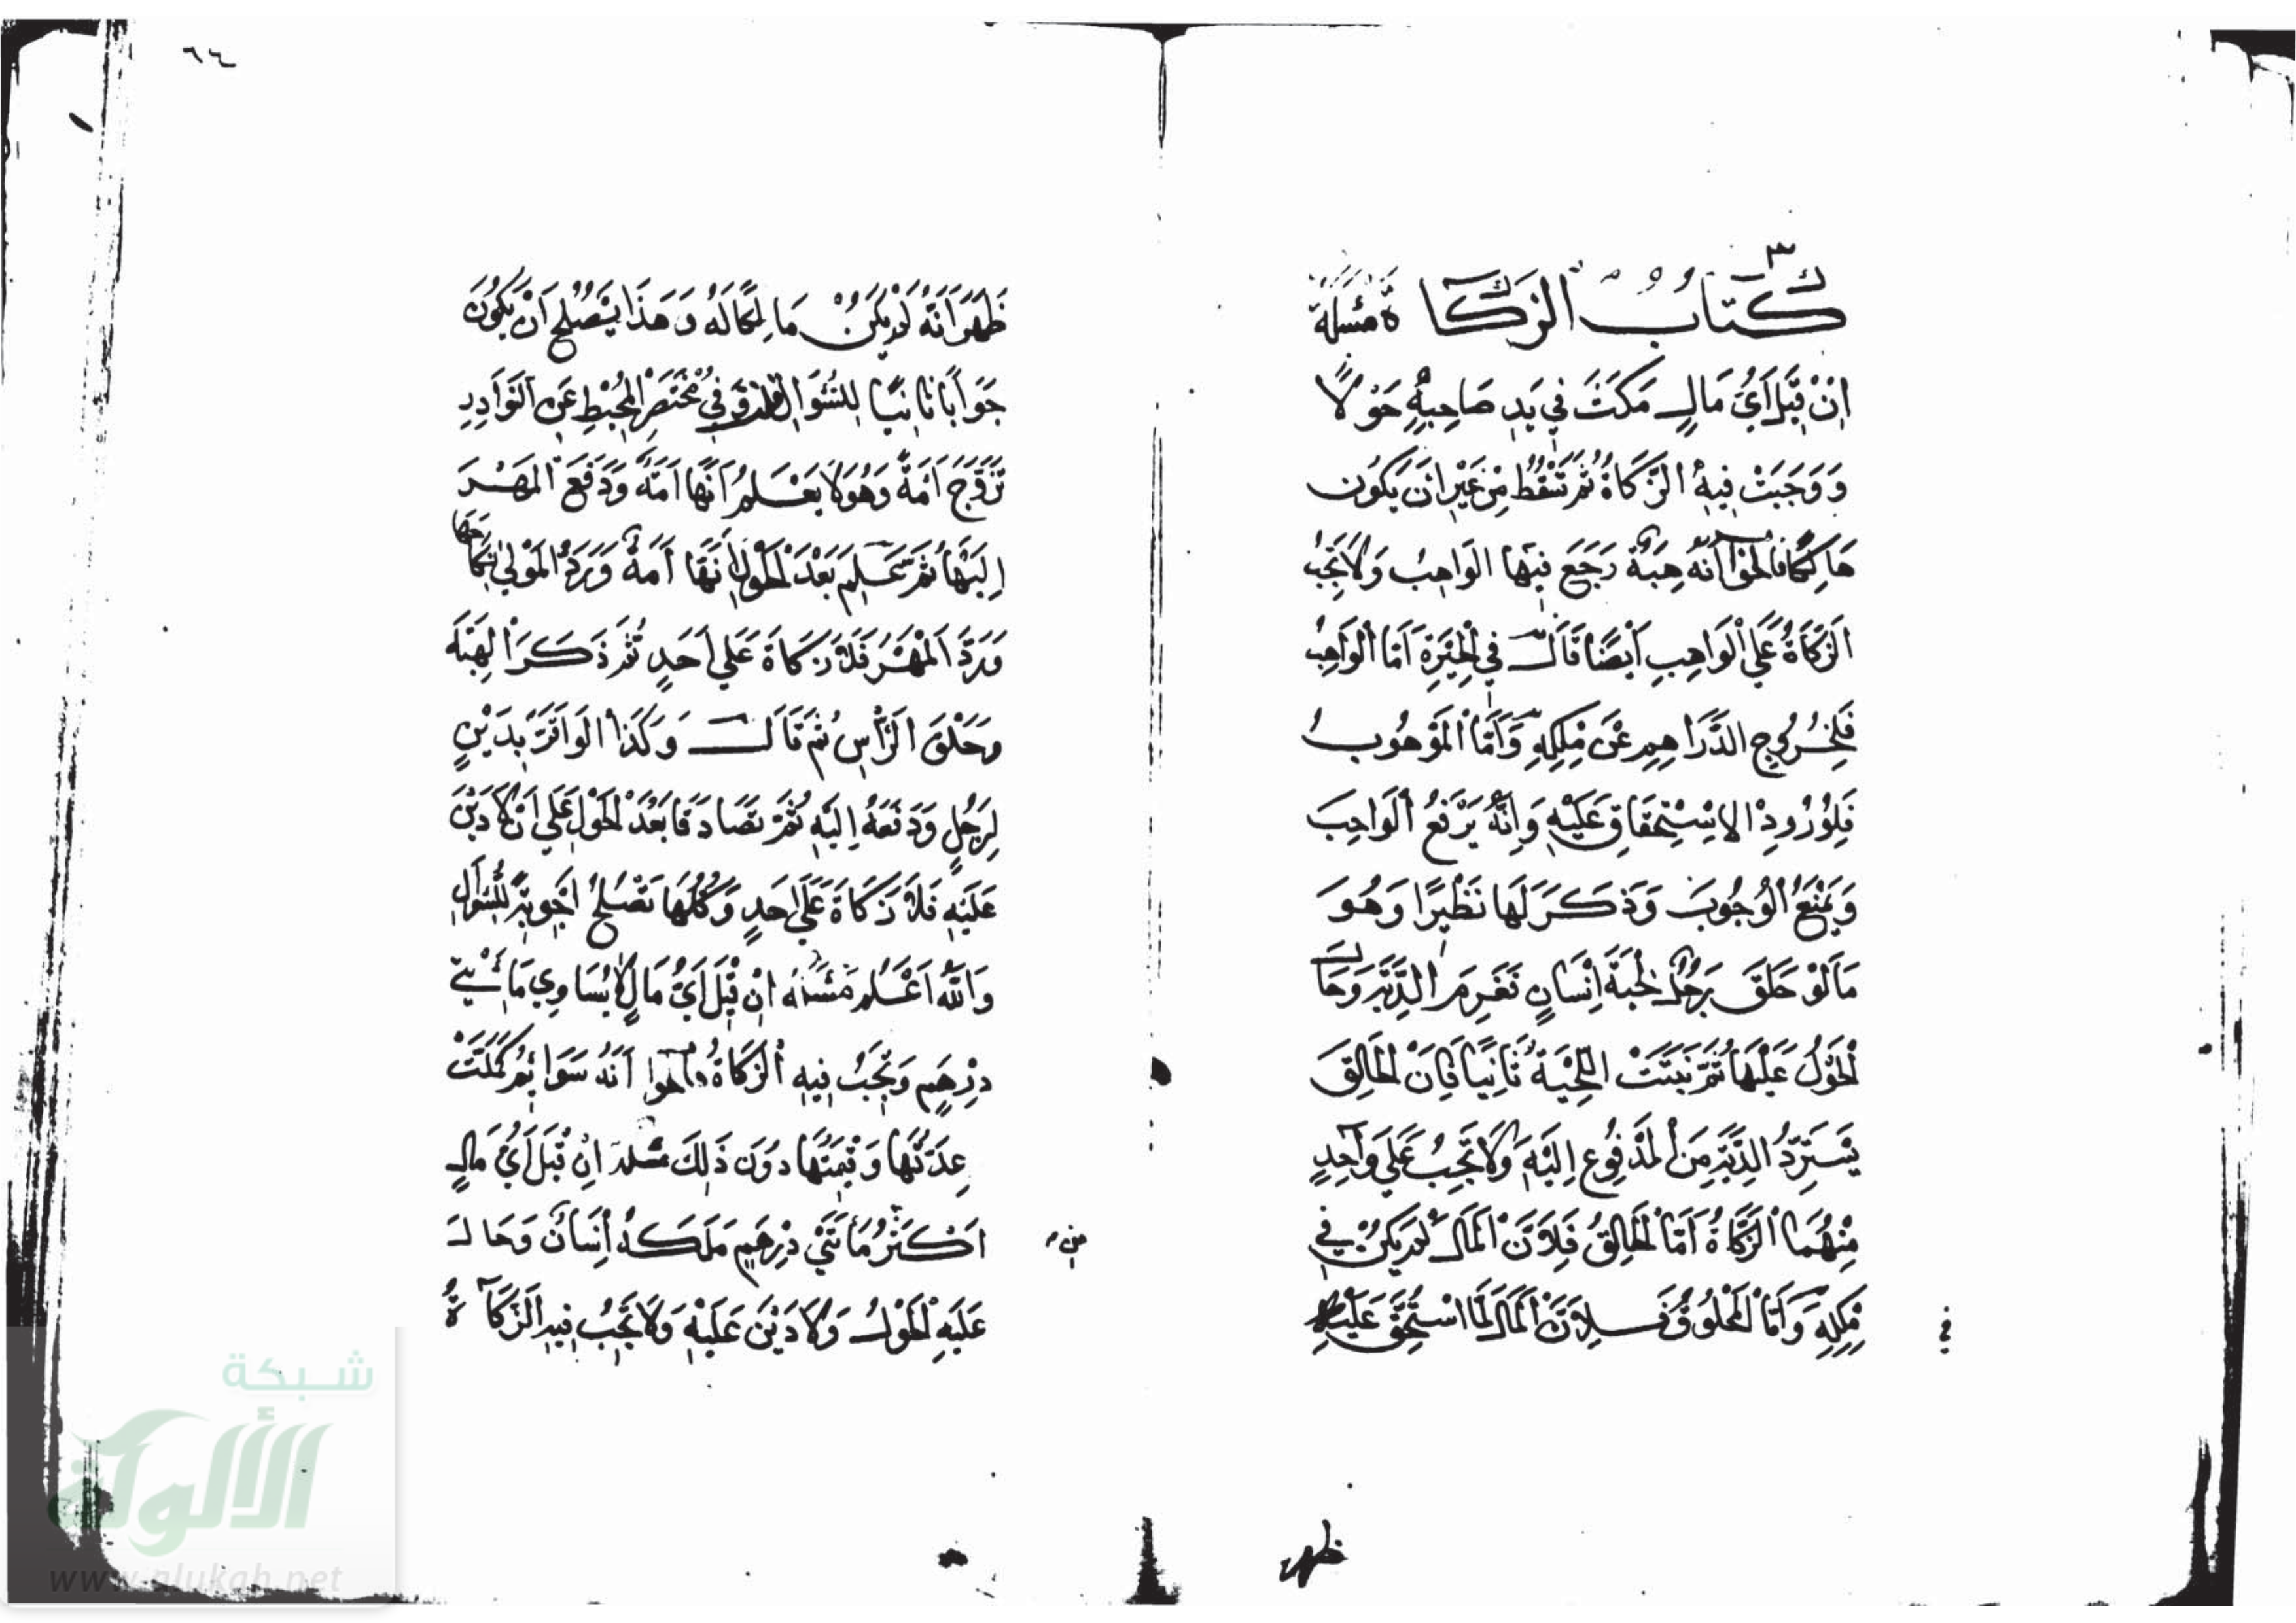 كتاب الزكاة مسئلة
ان قيل اي مال مكث في يد صاحبه حولا
ووجبت فيه الزكاة ثم تسقط من غير ان يكون
هالكا فالجواب انه هبة رجع فيها الواهب ولا تجب
الزكاة على الواهب ايضا قال في الحيرة اما الواهب
فلخروج الدراهم عن ملكه واما الموهوب
فلورود الاستحقاق عليه وانه يرفع الواجب
ويمنع الوجوب وذكر لها نظيرا وهو
ما لو حلق رجل لحية انسان فغرم الدية وحال
الحول عليها ثم نبتت اللحية ثانيا فان الحالق
يسترد الدية من المدفوع اليه ولا تجب على واحد
منهما الزكاة اما الحالق فلان المال لم يكن في
ملكه واما المحلوق فلان المال لما استحق عليه
ظهر
٦٤
ظهر انه لم يكن مالكا له وهذا يصلح ان يكون
جوابا ثانيا للسؤال وفي مختصر المحيط عن النوادر
تزوج امة وهو لا يعلم انها امة ودفع المهر
اليها ثم علم بعد الحول انها امة ورد المولى نكاحها
ورد المهر فلا زكاة على احد ثم ذكر الهبة
وحلق الراس ثم قال وكذا لو اقر بدين
لرجل ودفعه اليه ثم تصادقا بعد الحول على ان لا دين
عليه فلا زكاة على احد وكلها تصلح اجوبة للسؤال
والله اعلم مسئلة ان قيل اي مال لا يساوي مائتي
درهم وتجب فيه الزكاة فالجواب انه سوايم كملت
عدتها وقيمتها دون ذلك مسئلة ان قيل اي مال
اكثر مائتي درهم ملكه انسان وحال
من
عليه الحول ولا دين عليه ولا تجب فيه الزكاة
شبكة
الألوكة
www.alukah.net